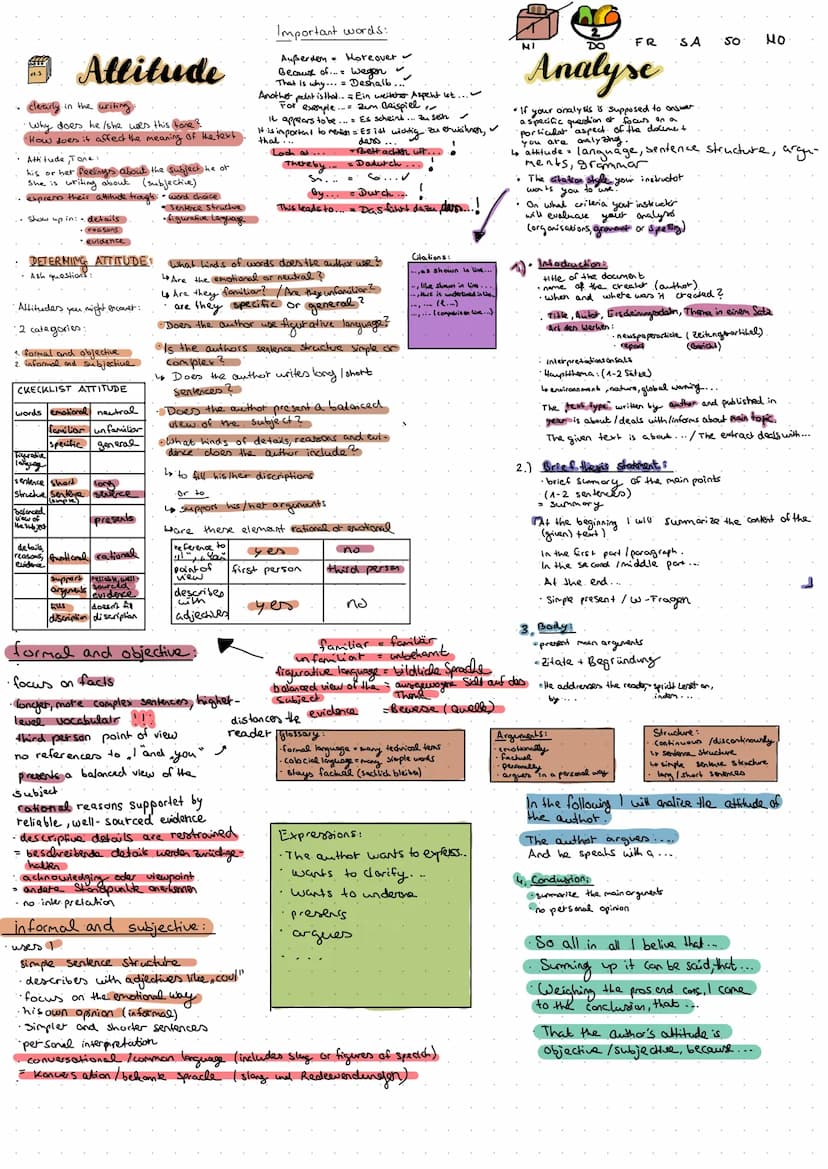 Important words:
Außerdem = Moreover ✓
Because of... = Wegen ✓
That is why... = Deshalb... ✓
Another point is that.. = Ein weiterer Aspekt ist... ✓
For exemple... = Zum Beispiel ✓
It appears to be... = Es scheint... zu sein ✓
It is important to ... = Es ist wichtig zu erwähnen, ✓
that ... dass ...
Thereby ... = Dadurch ... !
So... = ...✓
By... = Durch... !
This leads to... = Das führt dazu, dass...!
Attitude
clearly in the writing
Why does he/she uses this tone?
How does it affect the meaning of the text
Attitude, Tone:
his or her feelings about the subject he or
she is writing about (subjective)
express their attitude trough • word choice
• sentence structure
• figurative language
Show up in: • details
• reasons
• evidence
DETERMING ATTITUDE:
Ask questions:
Attitudes you might encover:
2 categories:
1. formal and objective
2. informal and subjective
What kinds of words does the author use?
↳ Are the emotional or neutral?
↳ Are they familiar? / Are they unfamiliar?
↳ are they specific or general?
Does the author use figurative language?
Is the authors sentence structue simple or
complex?
↳ Does the author writes long/short
sentences?
Does the author present a balanced
view of the subject?
What kinds of details, reasons and evi-
dence does the author include?
↳ to fill his/her discriptions
or to
↳ support his/her arguments
↳ are these element rational or emotional
Citations:
..., as shown in line...
..., like shown in line...
..., this is underlined in line
..., ... (l. ...)
..., ... (comparison line...)
CKECKLIST ATTITUDE
words emotional neutral
familiar unfamiliar
specific general
figurative
language
sentence short long
structue sentence sentence
(simple)
balanced
view of
the subject
presents
details,
reasons,
evidence
emotional rational
support reliable, well-
arguments sourced
evidence
fills doesn't fill
discription discription
reference to
"I", "you"
yes no
point of
view
first person third person
describes
with
adjectives
yes no
formal and objective:
focus on facts
longer, more complex sentences, higher-
level vocabular !!!
third person point of view
no references to "I and "you"
distances the
reader
presents a balanced view of the
subject
rational reasons supportet by
reliable, well-sourced evidence
descriptive details are restrained
= beschreibende details werden zurückge-
halten
acknowledging oder viewpoint
= andere Standpunkte anerkennen
no interpretation
familiar = familiär
unfamiliar = unbekannt
figurative language = bildliche Sprache
balanced view of the = ausgewogene Sicht auf das
subject Thema
evidence = Beweise (Quelle)
glossary:
formal language = many technical terms
colocial language = many simple words
stays factual (sachlich bleiben)
Arguments:
emotionally
factual
personally
argues in a personal way
Structure:
continuous / discontinously
↳ sentence structure
↳ simple sentence structure
long / short sentences
Expressions:
The author wants to express..
wants to clarify...
wants to underline
presents
argues
....
informal and subjective:
uses I
simple sentence structure
describes with adjectives like "cool"
focus on the emotional way
his own opinion (informal)
simpler and shorter sentences
personal interpretation
conversational / common language (includes slang or figures of speech)
= Konversation / bekannte Sprache (slang und Redewendungen)
MI 2 DO FR SA SO MO
Analyse
If your analysis is supposed to answer
a specific question or focus on a
particular aspect of the document
you are analyzing.
↳ attitude = language, sentence structure, argu-
ments, grammar
The citation style your instructor
wants you to use.
On what criteria your instructor
will evaluate your analysis
(organisations, grammar or spelling)
1.) Introduction:
title of the document
name of the creator (author)
when and where was it created?
Title, Autor, Erscheinungsdatum, Thema in einem Satz
Art des Werkes:
newspaperarticle (Zeitungsartikel)
report (Bericht)
Interpretationsansatz
Hauptthema: (1-2 Sätze)
↳ environment, nature, global warming...
The "text type" written by author and published in
year is about / deals with / informs about main topic.
The given text is about... / The extract deals with...
2.) Brief thesis statment:
brief summary of the main points
(1-2 sentences)
= summary
At the beginning I will summarize the content of the
(given) text)
In the first part / paragraph.
In the second / middle part...
At the end...
Simple present / W-Fragen
3. Body:
present main arguments
Zitate + Begründung
He addresses the reader
by... indem...
In the following I will analize the attitude of
the author.
The author argues....
And he speaks with a...
4. Conclusion:
summarize the main arguments
no personal opinion
So all in all I belive that...
Summing up it can be said, that...
Weighing the pros and cons, I come
to the conclusion, that...
That the author's attitude is
objective / subjective, because...